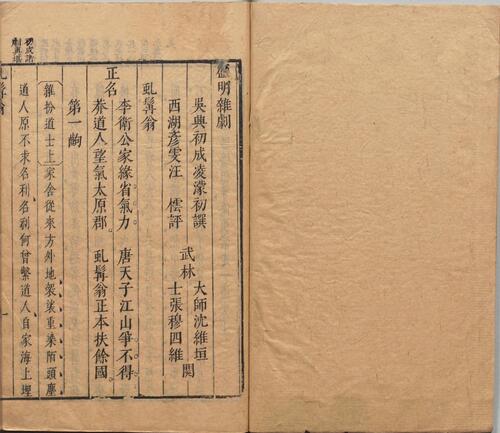 盛明雜劇
吳興初成凌濛初撰
西湖彥雯汪 櫄評
武林
大師沈維垣
士張穆四維
閱
虬髯翁
正名
李衛公家緣省氣力 唐天子江山爭不得
恭道人望氣太原郡 虬髯翁正本扶餘國
第一齣
雜扮道士上
家舍從來方外地袈裟重染陌頭塵
道人原不求名利名利何曾繫道人自家海上埋
虬髯翁
一